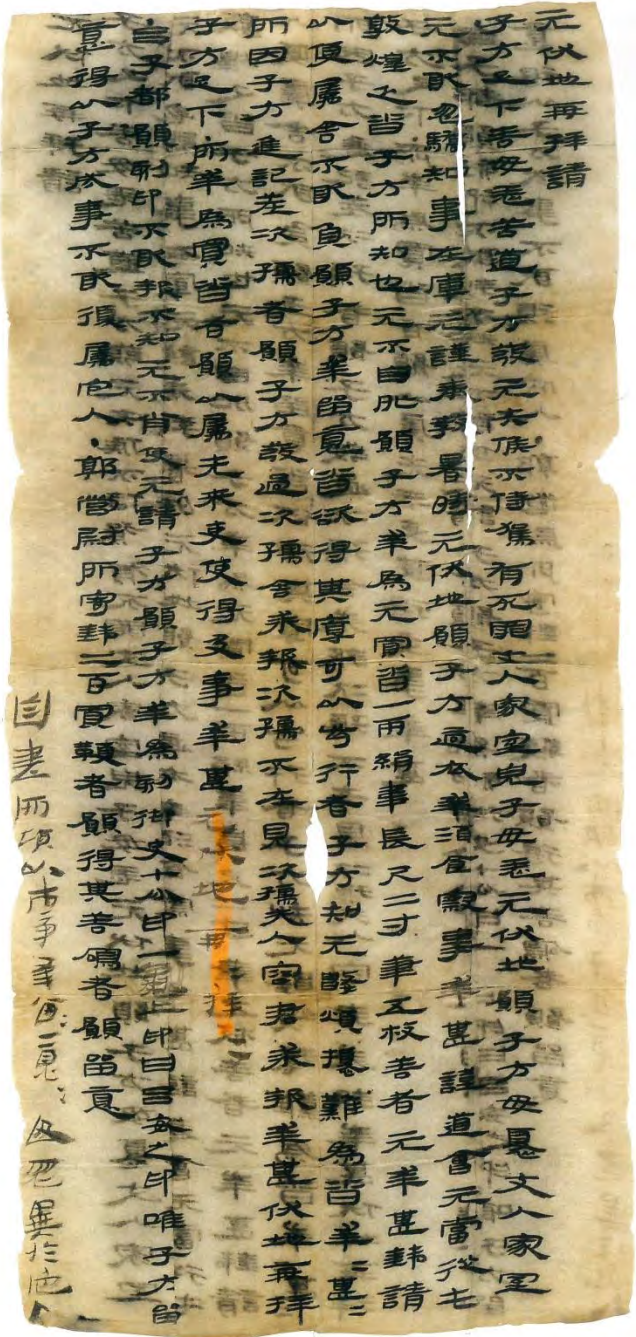 元伏地再拜請
子方足下善毋恙苦道子方發元失候不侍駕有死罪丈人家室兒子毋恙元伏地願子方毋憂丈人家室
元不敢忽驕知事在庫元謹奉教暑時元伏地願子方適衣幸酒食察事幸甚謹道會元當從屯
敦煌乏沓子方所知也元不自外願子方幸為元買沓一兩絹韋長尺二寸筆五枚善者元幸甚錢請
以便屬舍不敢負願子方幸留意沓欲得其厚可以步行者子方知元數煩擾難為沓幸〻甚〻
所因子方進記差次孺者願子方發過次孺舍求報次孺不在見次孺夫人容君求報幸甚伏地再拜
子方足下所幸為買沓者願以屬先來吏使得及事幸甚元伏地再拜〻
呂子都願刻印不敢報不知元不肖使元請子方願子方幸為刻御史七分印一龜上印曰呂安之印唯子方留
意得以子方成事不敢復屬它人·郭營尉所寄錢二百買鞭者願得其善鳴者願留意
自書所願以市事幸留〻意〻毋忽異於它人